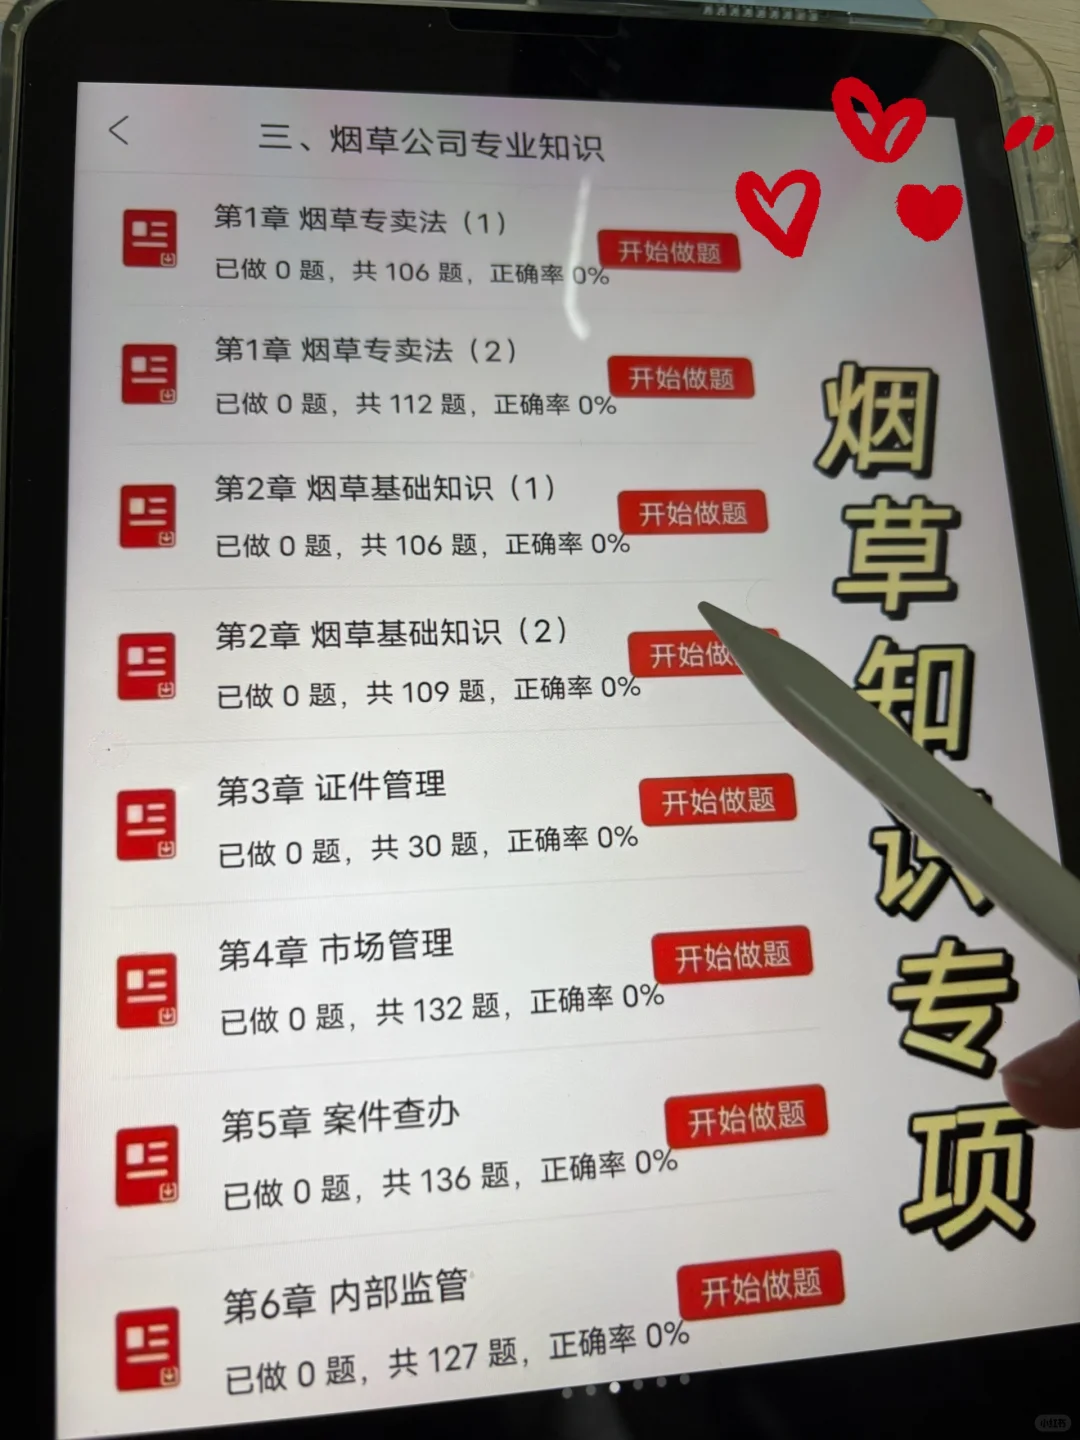 三、烟草公司专业知识
第1章 烟草专卖法（1）
已做 0 题，共 106 题，正确率 0%
开始做题
第1章 烟草专卖法（2）
已做 0 题，共 112 题，正确率 0%
开始做题
第2章 烟草基础知识（1）
已做 0 题，共 106 题，正确率 0%
开始做题
第2章 烟草基础知识（2）
已做 0 题，共 109 题，正确率 0%
开始做
第3章 证件管理
已做 0 题，共 30 题，正确率 0%
开始做题
第4章 市场管理
已做 0 题，共 132 题，正确率 0%
开始做题
第5章 案件查办
已做 0 题，共 136 题，正确率 0%
开始做题
第6章 内部监管
已做 0 题，共 127 题，正确率 0%
开始做题
烟草知识专项
小红书